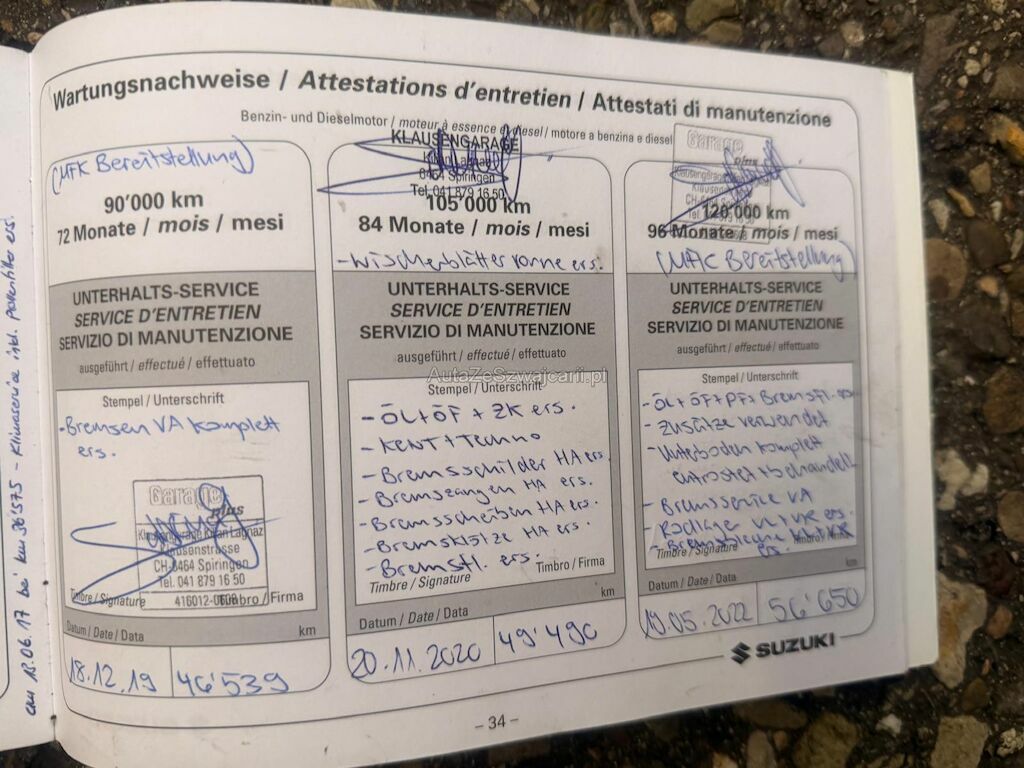 Wartungsnachweise / Attestations d'entretien / Attestati di manutenzione
Benzin- und Dieselmotor / moteur à essence et diesel / motore a benzina e diesel
(MFK Bereitstellung)
90'000 km
72 Monate / mois / mesi
UNTERHALTS-SERVICE
SERVICE D'ENTRETIEN
SERVIZIO DI MANUTENZIONE
ausgeführt / effectué / effettuato
Stempel / Unterschrift
- Bremsen VA komplett
ers.
Garage
plus
Klausengarage Kilian Lagnaz
Klausenstrasse
CH-6464 Spiringen
Tel. 041 879 16 50
Timbre / Signature
Timbro / Firma
Datum / Date / Data
km
18.12.19
46'539
KLAUSENGARAGE
Kilian Lagnaz
6464 Spiringen
Tel. 041 879 16 50
105'000 km
84 Monate / mois / mesi
- Wischerblätter vorne ers.
UNTERHALTS-SERVICE
SERVICE D'ENTRETIEN
SERVIZIO DI MANUTENZIONE
ausgeführt / effectué / effettuato
Stempel / Unterschrift
- ÖL + ÖF + ZK ers.
- KENT + Techno
- Bremsschilder HA ers.
- Bremszangen HA ers.
- Bremsscheiben HA ers.
- Bremsklötze HA ers.
- Bremsfl. ers.
Timbre / Signature
Timbro / Firma
Datum / Date / Data
km
20.11.2020
49'490
Garage
plus
120'000 km
96 Monate / mois / mesi
(MFK Bereitstellung)
UNTERHALTS-SERVICE
SERVICE D'ENTRETIEN
SERVIZIO DI MANUTENZIONE
ausgeführt / effectué / effettuato
Stempel / Unterschrift
- ÖL + ÖF + PF + Bremsfl. ers.
- Zusätze verwendet
- Unterboden komplett
entrostet + behandelt
- Bremsservice VA
- Radlager VL + VR ers.
- Bremsbleche
ers.
Timbre / Signature
Datum / Date / Data
km
19.05.2022
56'650
SUZUKI
- 34 -
am 18.06.17 bei km 36'575 - Klimaservice inkl. Pollenfilter ers.
AutaZeSzwajcarii.pl